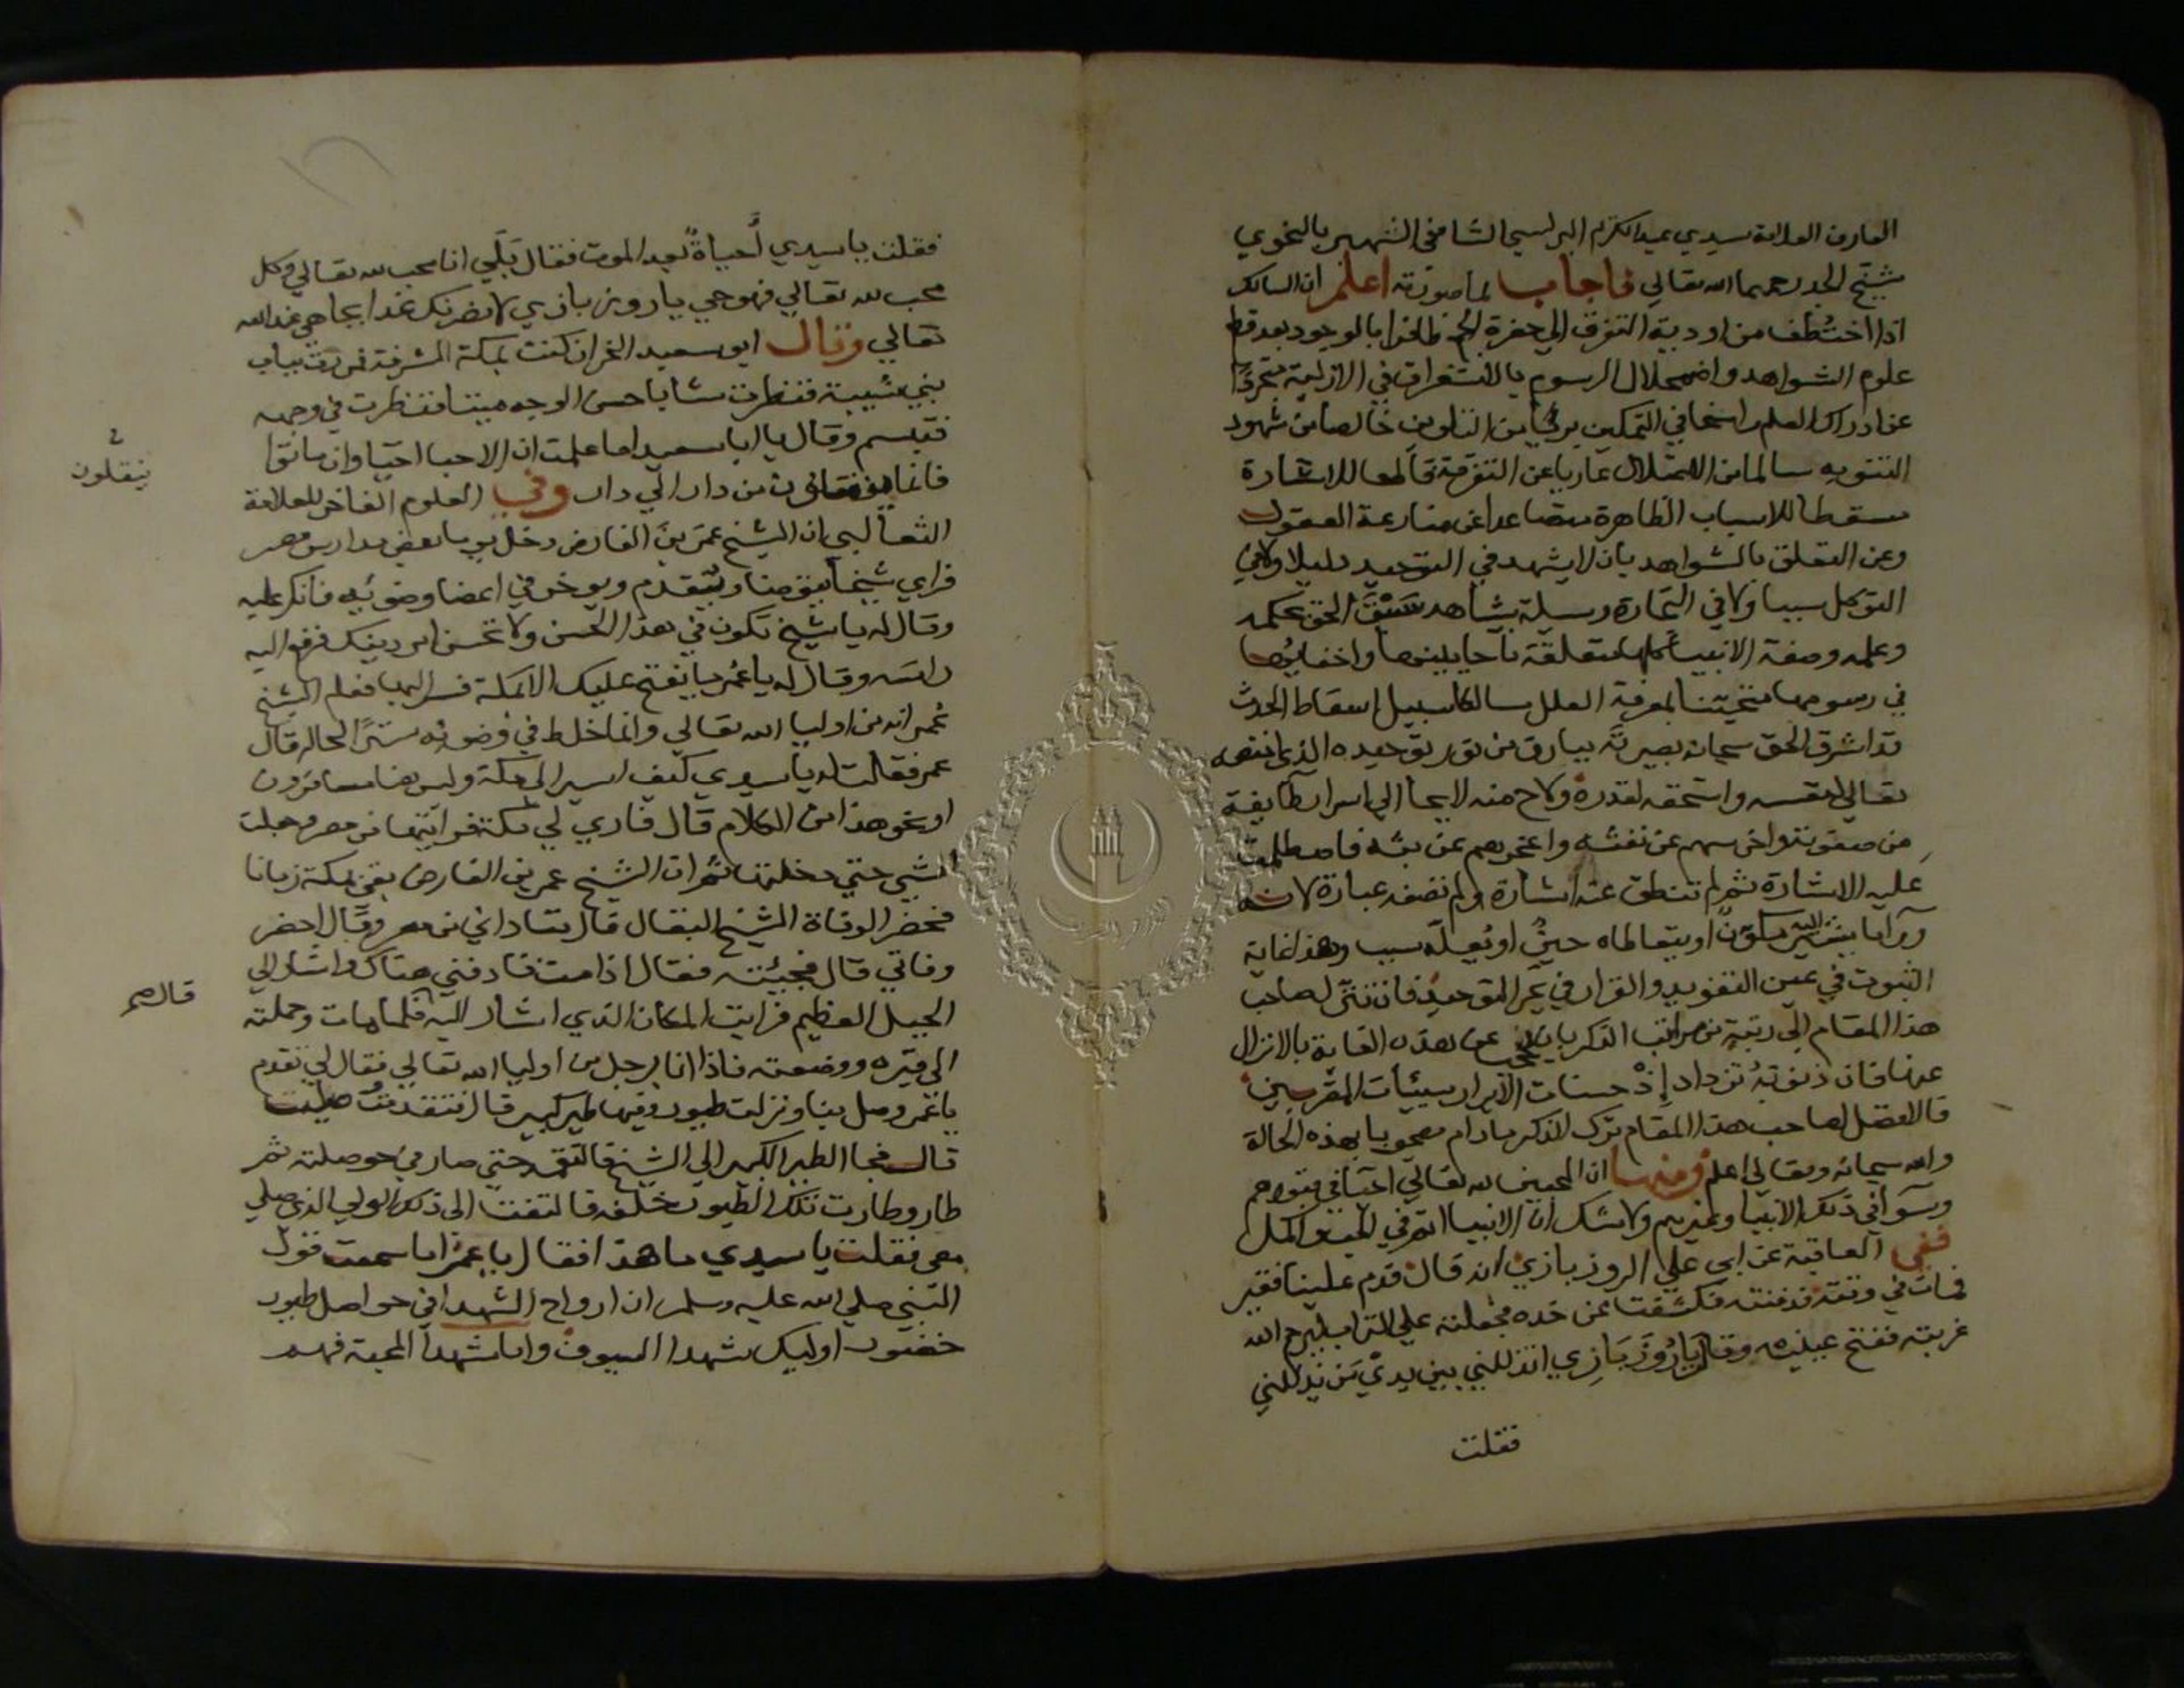 العارف العلامة سيدي عبد الكريم البرلسي الشافعي الشهير بالنحوي
شيخ الجد رحمهما الله تعالى فاجاب بما صورته اعلم ان السالك
اذا اختطف من اودية التفرق الى حضرة الجمع ظافرا بالوجود بعد قطع
علوم الشواهد واضمحلال الرسوم بالاستغراق في الازلية متجردا
عن ادراك العلم راسخا في التمكين بريًّا من التلوين خالصا من شهود
الثنويه سالما من الاعتلال عاريا عن التفرقة قالعا للاشارة
مسقطا للاسباب الظاهرة متصاعدا عن منازعة العقول
وعن التعلق بالشواهد بان لا يشهد في التوحيد دليلا ولا في
التوكل سببا ولا في النجاة وسيلة يشاهد سبق الحق بحكمه
وعلمه وصفة الاشيا كلها متعلقة باحايينها واخفايها
في رسومها متحققا بمعرفة العلل سالكا سبيل اسقاط الحدث
قد اشرق الحق سبحانه بصيرته ببارق من نور توحيده الذي اختصه
تعالى لنفسه واستحقه لقدره ولاح منه لايحا الى اسرار طايفة
من صفوته واخرسهم عن نعته واعجزهم عن بثه فاصطلمت
عليه الاشارة ثم لم تنطق عنه اشارة ولم تصفه عبارة لانه
ورا ما يشير اليه مكون او يتعاطاه حين او يعله سبب وهذا غاية
الثبوت في عين التفريد والقرار في بحر التوحيد فان تنزل صاحب
هذا المقام الى رتبة من مراتب الذكر بان يحجب عن هذه الغاية بالانزال
عنها فان ذنوبه تزداد إذ حسنات الابرار سيئات المقربين
فالافضل لصاحب هذا المقام ترك الذكر مادام مصحوبا بهذه الحالة
والله سبحانه وتعالى اعلم ومنها ان المحبين لله تعالى احيا في قبورهم
وسوا في ذلك الانبيا وغيرهم ولا شك ان الانبيا اتم في المحبة واكمل
ففي العاقبة عن ابي علي الروزبازي انه قال قدم علينا فقير
فمات في وقته فدفنته فكشفت عن خده فجعلته على التراب ليرحم الله
غربته ففتح عينيه وقال يا رُوزَبَازِي اتذللني بين يدي من يذللني
فقلت
فقلت يا سيدي أحياةً بعد الموت فقال بلى انا محب لله تعالى وكل
محب لله تعالى فهو حي يا روزبازي لانضرنك غدا بجاهي عند الله
تعالى وقال ابو سعيد الخراز كنت بمكة المشرفة فمررت بباب
بني شيبة فنظرت شابا حسن الوجه ميتا فنظرت في وجهه
فتبسم وقال يا ابا سعيد اما علمت ان الاحبا احيا وان ماتوا
فانما ينقلون من دار الى دار وفي العلوم الفاخر للعلامة
ينقلون
الثعالبي ان الشيخ عمر بن الفارض دخل يوما بعض مدارس مصر
فراى شيخا يتوضا ويقدم ويوخر في اعضا وضوئه فانكر عليه
وقال له يا شيخ تكون في هذا السن ولا تحسن امر دينك فرفع اليه
راسه وقال له يا عمر ما يفتح عليك الا بمكة فسر اليها فعلم الشيخ
عمر انه من اوليا الله تعالى وانما خلط في وضوئه سترا لحاله قال
عمر فقلت له يا سيدي كيف اسير الى مكة وليس هنا مسافرون
او نحو هذا من الكلام قال فاري لي مكة فرايتها من مصر وجعلت
امشي حتى دخلتها ثم ان الشيخ عمر بن الفارض بقي بمكة زمانا
فحضر الوفاة الشيخ البقال قال فناداني من مصر وقال احضر
وفاتي قال فجئته فقال اذا مت فادفني هناك واشار الى
قال صح
الجبل العظيم فرايت المكان الذي اشار اليه فلما مات وحملته
الى قبره ووضعته فاذا انا برجل من اوليا الله تعالى فقال لي تقدم
يا عمر وصل بنا ونزلت طيور وفيها طير كبير قال فتقدمت وصليت
قال فجا الطير الكبير الى الشيخ فالتقمه حتى صار في حوصلته ثم
طار وطارت تلك الطيور خلفه فالتفت الى ذلك الولي الذي صلى
معي فقلت يا سيدي ما هذا فقال يا عمر اما سمعت قول
النبي صلى الله عليه وسلم ان ارواح الشهدا في حواصل طيور
خضر اوليك شهدا السيوف واما شهدا المحبة فهم